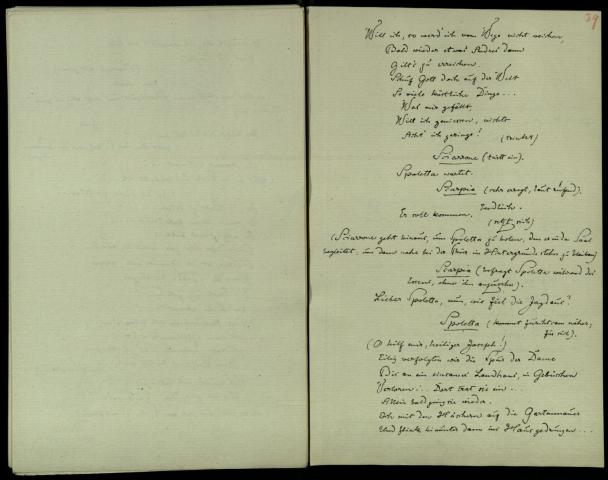 39
Will ich, so werd' ich vom Wege nicht weichen,
Bald wieder etwas Andres dann
Gilt's zu erreichen.
Schuf Gott doch auf der Welt
So viele köstliche Dinge...
Was mir gefällt,
Will ich geniessen, nichts
Acht' ich geringe! (trinkt)
Sciarrone (tritt ein).
Spoletta wartet.
Scarpia (sehr erregt, laut rufend).
Endlich.
Er soll kommen. (setzt sich)
(Sciarrone geht hinaus, um Spoletta zu holen, den er in den Saal
begleitet, um dann nahe bei der Thür im Hintergrunde stehen zu bleiben)
Scarpia (befragt Spoletta während des
Essens, ohne ihn anzusehen).
Lieber Spoletta, nun, wie fiel die Jagd aus?
Spoletta (kommt furchtsam näher,
für sich).
(O hilf mir, heiliger Joseph!)
Eilig verfolgten wir die Spur der Dame
Bis an ein einsames Landhaus, in Gebüschen
Verloren... Dort trat sie ein...
Allein bald ging sie wieder.
Ich mit den Häschern auf die Gartenmauer
Und flink hinunter dann ins Haus gedrungen...